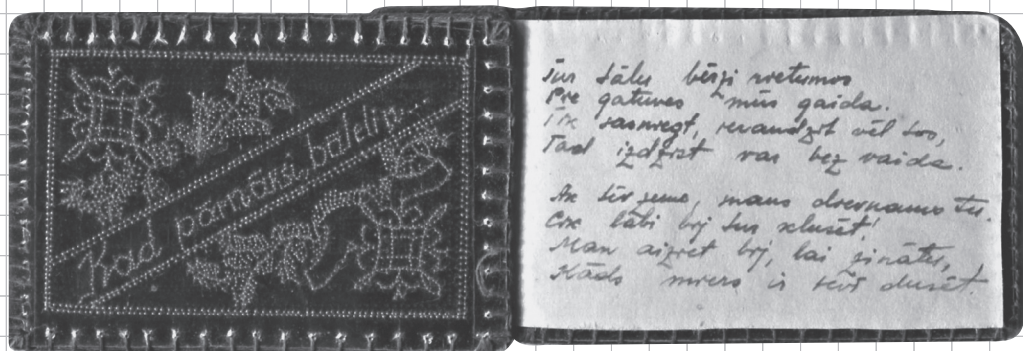 Kad pārnāksi, bāleliņ
Tur tālu bērzi svētumos
Pie gatuves mūs gaida.
Tik sasniegt, ieraudzīt vēl tos,
Tad izdzist var bez vaida.
Ak tēv zeme, mans dievnams Tu.
Cik labi bij tur klusēt!
Man aiziet bij, lai zinātu,
Kāds miers ir tevī dusēt.